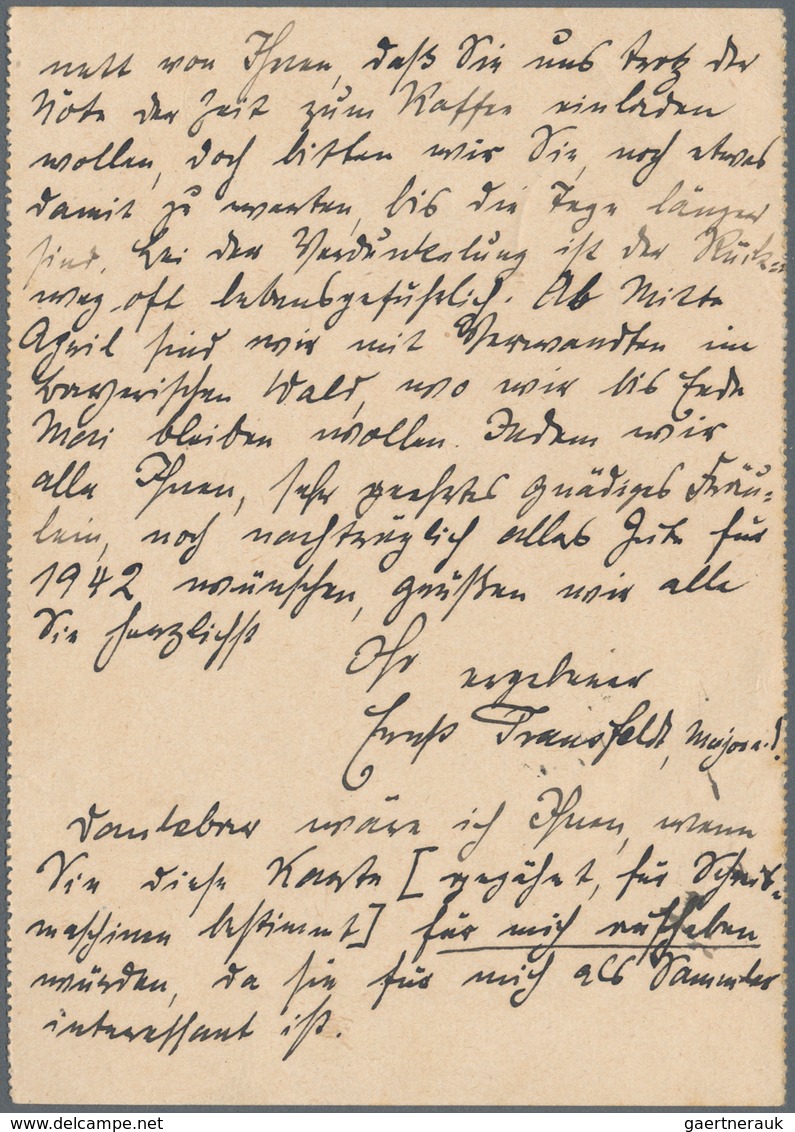 nett von Ihnen, daß Sie uns trotz der
Nöte der Zeit zum Kaffee einladen
wollen, doch bitten wir Sie, noch etwas
damit zu warten, bis die Tage länger
sind. Bei der Verdunkelung ist der Rück-
weg oft lebensgefährlich. Ab Mitte
April sind wir mit Verwandten im
bayerischen Wald, wo wir bis Ende
Mai bleiben wollen. Indem wir
alle Ihnen, sehr geehrtes gnädiges Fräu-
lein, noch nachträglich alles Gute für
1942 wünschen, grüßen wir alle
Sie herzlichst
Ihr ergebener
Ernst Transfeldt, Major a.D.
Dankbar wäre ich Ihnen, wenn
Sie diese Karte [gezähnt, für Schreib-
maschinen bestimmt] für mich aufheben
würden, da sie für mich als Sammler
interessant ist.
gaertnerauk